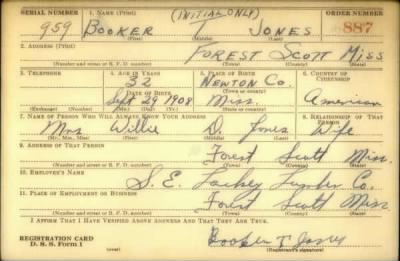 SERIAL NUMBER 1. NAME (Print) (INITIAL ONLY) ORDER NUMBER
959 BOOKER JONES 887
(First) (Middle) (Last)
2. ADDRESS (Print)
FOREST SCOTT MISS
(Number and street or R. F. D. number) (Town) (County) (State)
3. TELEPHONE 4. AGE IN YEARS 5. PLACE OF BIRTH 6. COUNTRY OF CITIZENSHIP
32 NEWTON CO.
DATE OF BIRTH (Town or county)
Sept 29 1908 Miss. American
(Exchange) (Number) (Mo.) (Day) (Yr.) (State or country)
7. NAME OF PERSON WHO WILL ALWAYS KNOW YOUR ADDRESS 8. RELATIONSHIP OF THAT PERSON
Mrs Willie D. Jones Wife
(Mr., Mrs., Miss) (First) (Middle) (Last)
9. ADDRESS OF THAT PERSON
Forest Scott Miss.
(Number and street or R. F. D. number) (Town) (County) (State)
10. EMPLOYER'S NAME
S. E. Lackey Lumber Co.
11. PLACE OF EMPLOYMENT OR BUSINESS
Forest Scott Miss
(Number and street or R. F. D. number) (Town) (County) (State)
I AFFIRM THAT I HAVE VERIFIED ABOVE ANSWERS AND THAT THEY ARE TRUE.
REGISTRATION CARD
D. S. S. Form 1 Booker T Jones
(Registrant's signature)